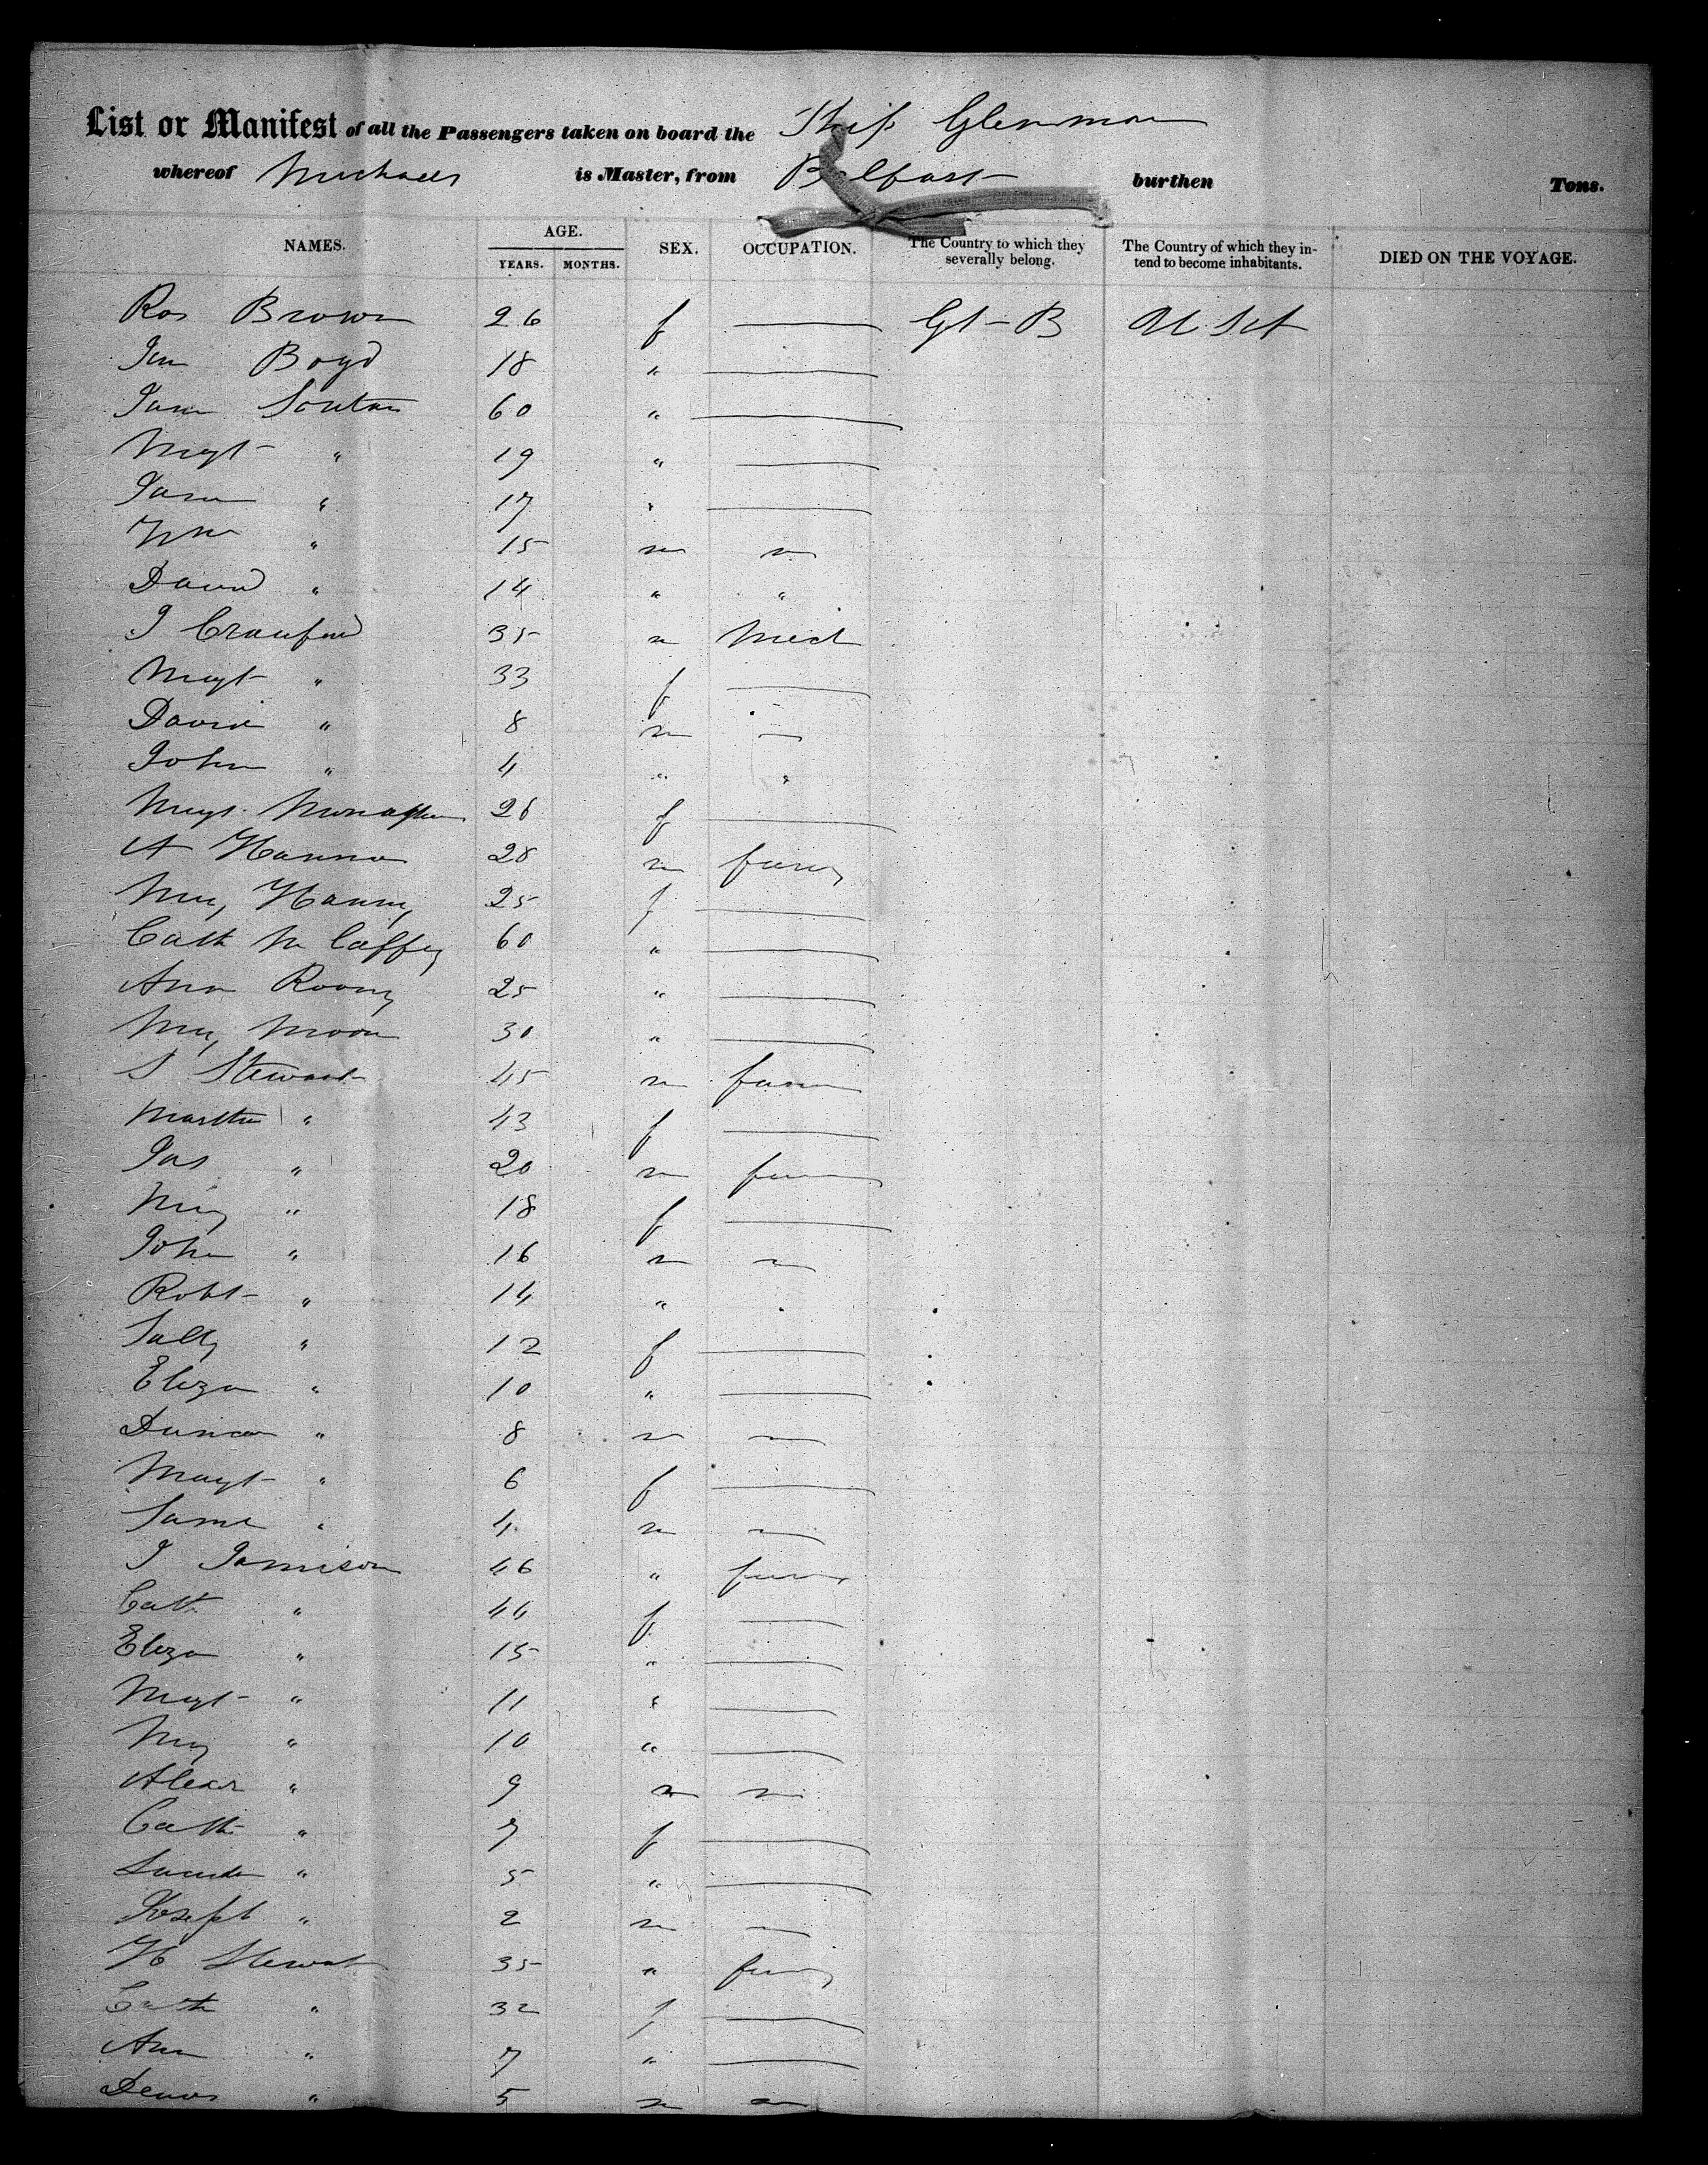 List or Manifest of all the Passengers taken on board the Ship Glenmon
whereof Michaels is Master, from Belfast burthen Tons.
NAMES. AGE. YEARS. MONTHS. SEX. OCCUPATION. The Country to which they severally belong. The Country of which they intend to become inhabitants. DIED ON THE VOYAGE.
Ros Brown 26 f — Gt-B U. Sts
Jan Boyd 18 " —
Jane 60 " —
Mgt " 19 " —
Jane " 17 " —
Wm " 15 m
David " 14 " "
J Craufurd 35 m Mech
Mgt " 33 f —
David " 8 m —
John " 4 " "
Mgt f —
A Hanna 28 m farm
My Hanna 25 f —
Cath McCaffey 60 " —
Ann Roony 25 " —
My Moore 30 " —
S Stewart 45 m farm
Martha " 43 f —
Jas " 20 m farm
My " 18 f —
John " 16 m
Robt " 14 "
Sally " 12 f —
Eliza " 10 " —
Duncan " 8 m
Margt " 6 f —
Saml " 4 m
J Jamison 46 " farm
Cath " 44 f —
Eliza " 15 " —
Mgt " 11 " —
My " 10 " —
Alexr " 9 m
Cath " 7 f —
" 5 " —
Joseph " 2 m
H Stewart 35 " farm
Cath " 32 f —
Ann " 7 " —
Dennis " 5 m